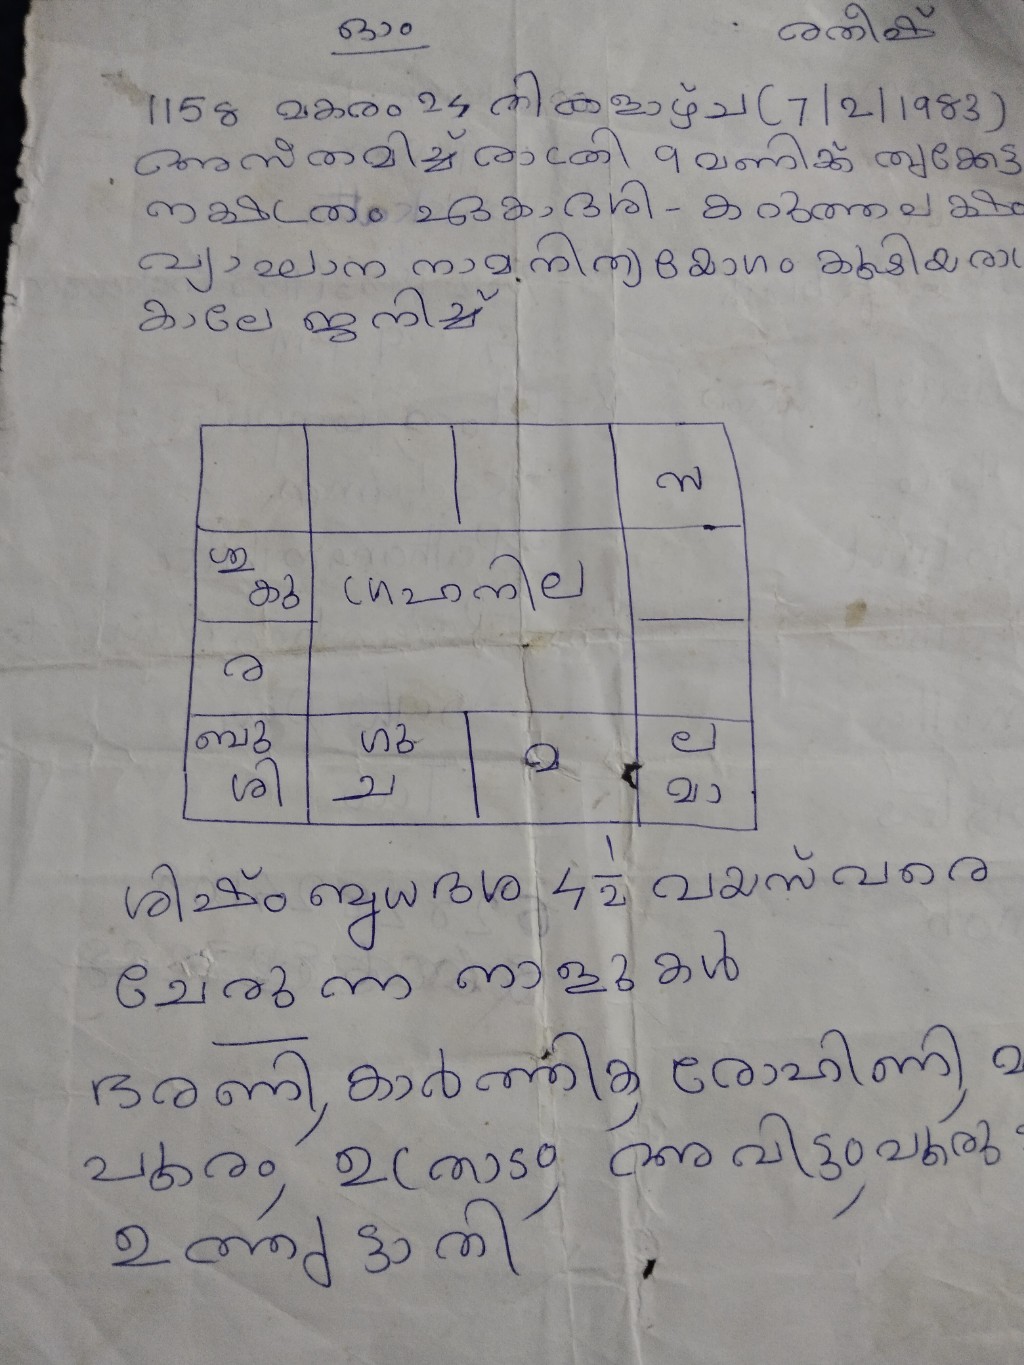 ഓം
രതീഷ്
1158 മകരം 24 തിങ്കളാഴ്ച (7/2/1983)
അസ്തമിച്ച് രാത്രി 9 മണിക്ക് തൃക്കേട്ട
നക്ഷത്രം ഏകാദശി - കറുത്തപക്ഷം
നാമ നിത്യയോഗം കൂടിയ
കാലേ ജനിച്ച്
സ
ശു
കു
ഗ്രഹനില
ര
ബു
ശി
ഗു
ച
മ
ല
മാ
ശിഷ്ടം ബുധദശ 4 1/2 വയസ് വരെ
ചേരുന്ന നാളുകൾ
ഭരണി, കാർത്തിക, രോഹിണി,
പൂരം, ഉത്രാടം, അവിട്ടം,
ഉത്തൃട്ടാതി